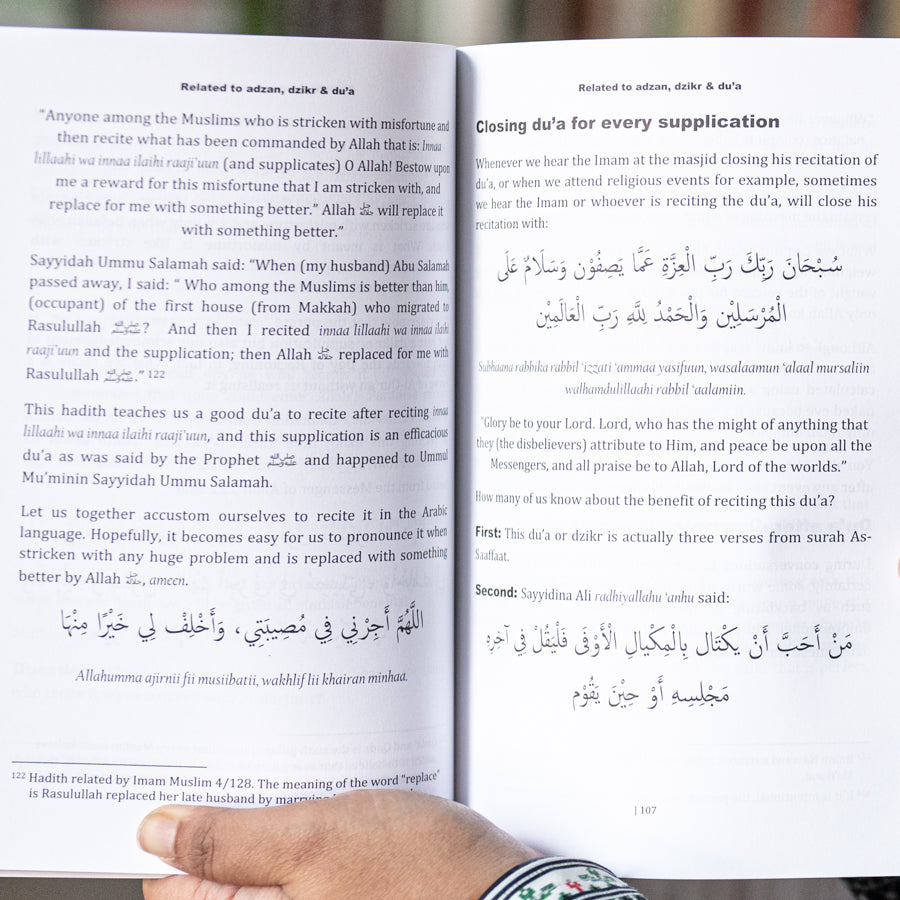 Related to adzan, dzikr & du’a
“Anyone among the Muslims who is stricken with misfortune and
then recite what has been commanded by Allah that is: Innaa
lillaahi wa innaa ilaihi raaji’uun (and supplicates) O Allah! Bestow upon
me a reward for this misfortune that I am stricken with, and
replace for me with something better.” Allah ﷻ will replace it
with something better.”
Sayyidah Ummu Salamah said: “When (my husband) Abu Salamah
passed away, I said: “ Who among the Muslims is better than him,
(occupant) of the first house (from Makkah) who migrated to
Rasulullah ﷺ? And then I recited innaa lillaahi wa innaa ilaihi
raaji’uun and the supplication; then Allah ﷻ replaced for me with
Rasulullah ﷺ.” 122
This hadith teaches us a good du’a to recite after reciting innaa
lillaahi wa innaa ilaihi raaji’uun, and this supplication is an efficacious
du’a as was said by the Prophet ﷺ and happened to Ummul
Mu’minin Sayyidah Ummu Salamah.
Let us together accustom ourselves to recite it in the Arabic
language. Hopefully, it becomes easy for us to pronounce it when
stricken with any huge problem and is replaced with something
better by Allah ﷻ, ameen.
اللَّهُمَّ أَجِرْنِي فِي مُصِيبَتِي، وَأَخْلِفْ لِي خَيْرًا مِنْهَا
Allahumma ajirnii fii musiibatii, wakhlif lii khairan minhaa.
122 Hadith related by Imam Muslim 4/128. The meaning of the word “replace”
is Rasulullah replaced her late husband by marrying
Related to adzan, dzikr & du’a
Closing du’a for every supplication
Whenever we hear the Imam at the masjid closing his recitation of
du’a, or when we attend religious events for example, sometimes
we hear the Imam or whoever is reciting the du’a, will close his
recitation with:
سُبْحَانَ رَبِّكَ رَبِّ الْعِزَّةِ عَمَّا يَصِفُوْن وَسَلَامٌ عَلَى
الْمُرْسَلِيْن وَالْحَمْدُ لِلَّهِ رَبِّ الْعَالَمِيْن
Subhaana rabbika rabbil ‘izzati ‘ammaa yasifuun, wasalaamun ‘alaal mursaliin
walhamdulillaahi rabbil ‘aalamiin.
“Glory be to your Lord. Lord, who has the might of anything that
they (the disbelievers) attribute to Him, and peace be upon all the
Messengers, and all praise be to Allah, Lord of the worlds.”
How many of us know about the benefit of reciting this du’a?
First: This du’a or dzikr is actually three verses from surah As-
Saaffaat.
Second: Sayyidina Ali radhiyallahu ‘anhu said:
مَنْ أَحَبَّ أَنْ يَكْتَال بِالْمِكْيَالِ الْأَوْفَى فَلْيَقُلْ فِي آخِرِهِ
مَجْلِسِهِ أَوْ حِيْنَ يَقُوْم
| 107